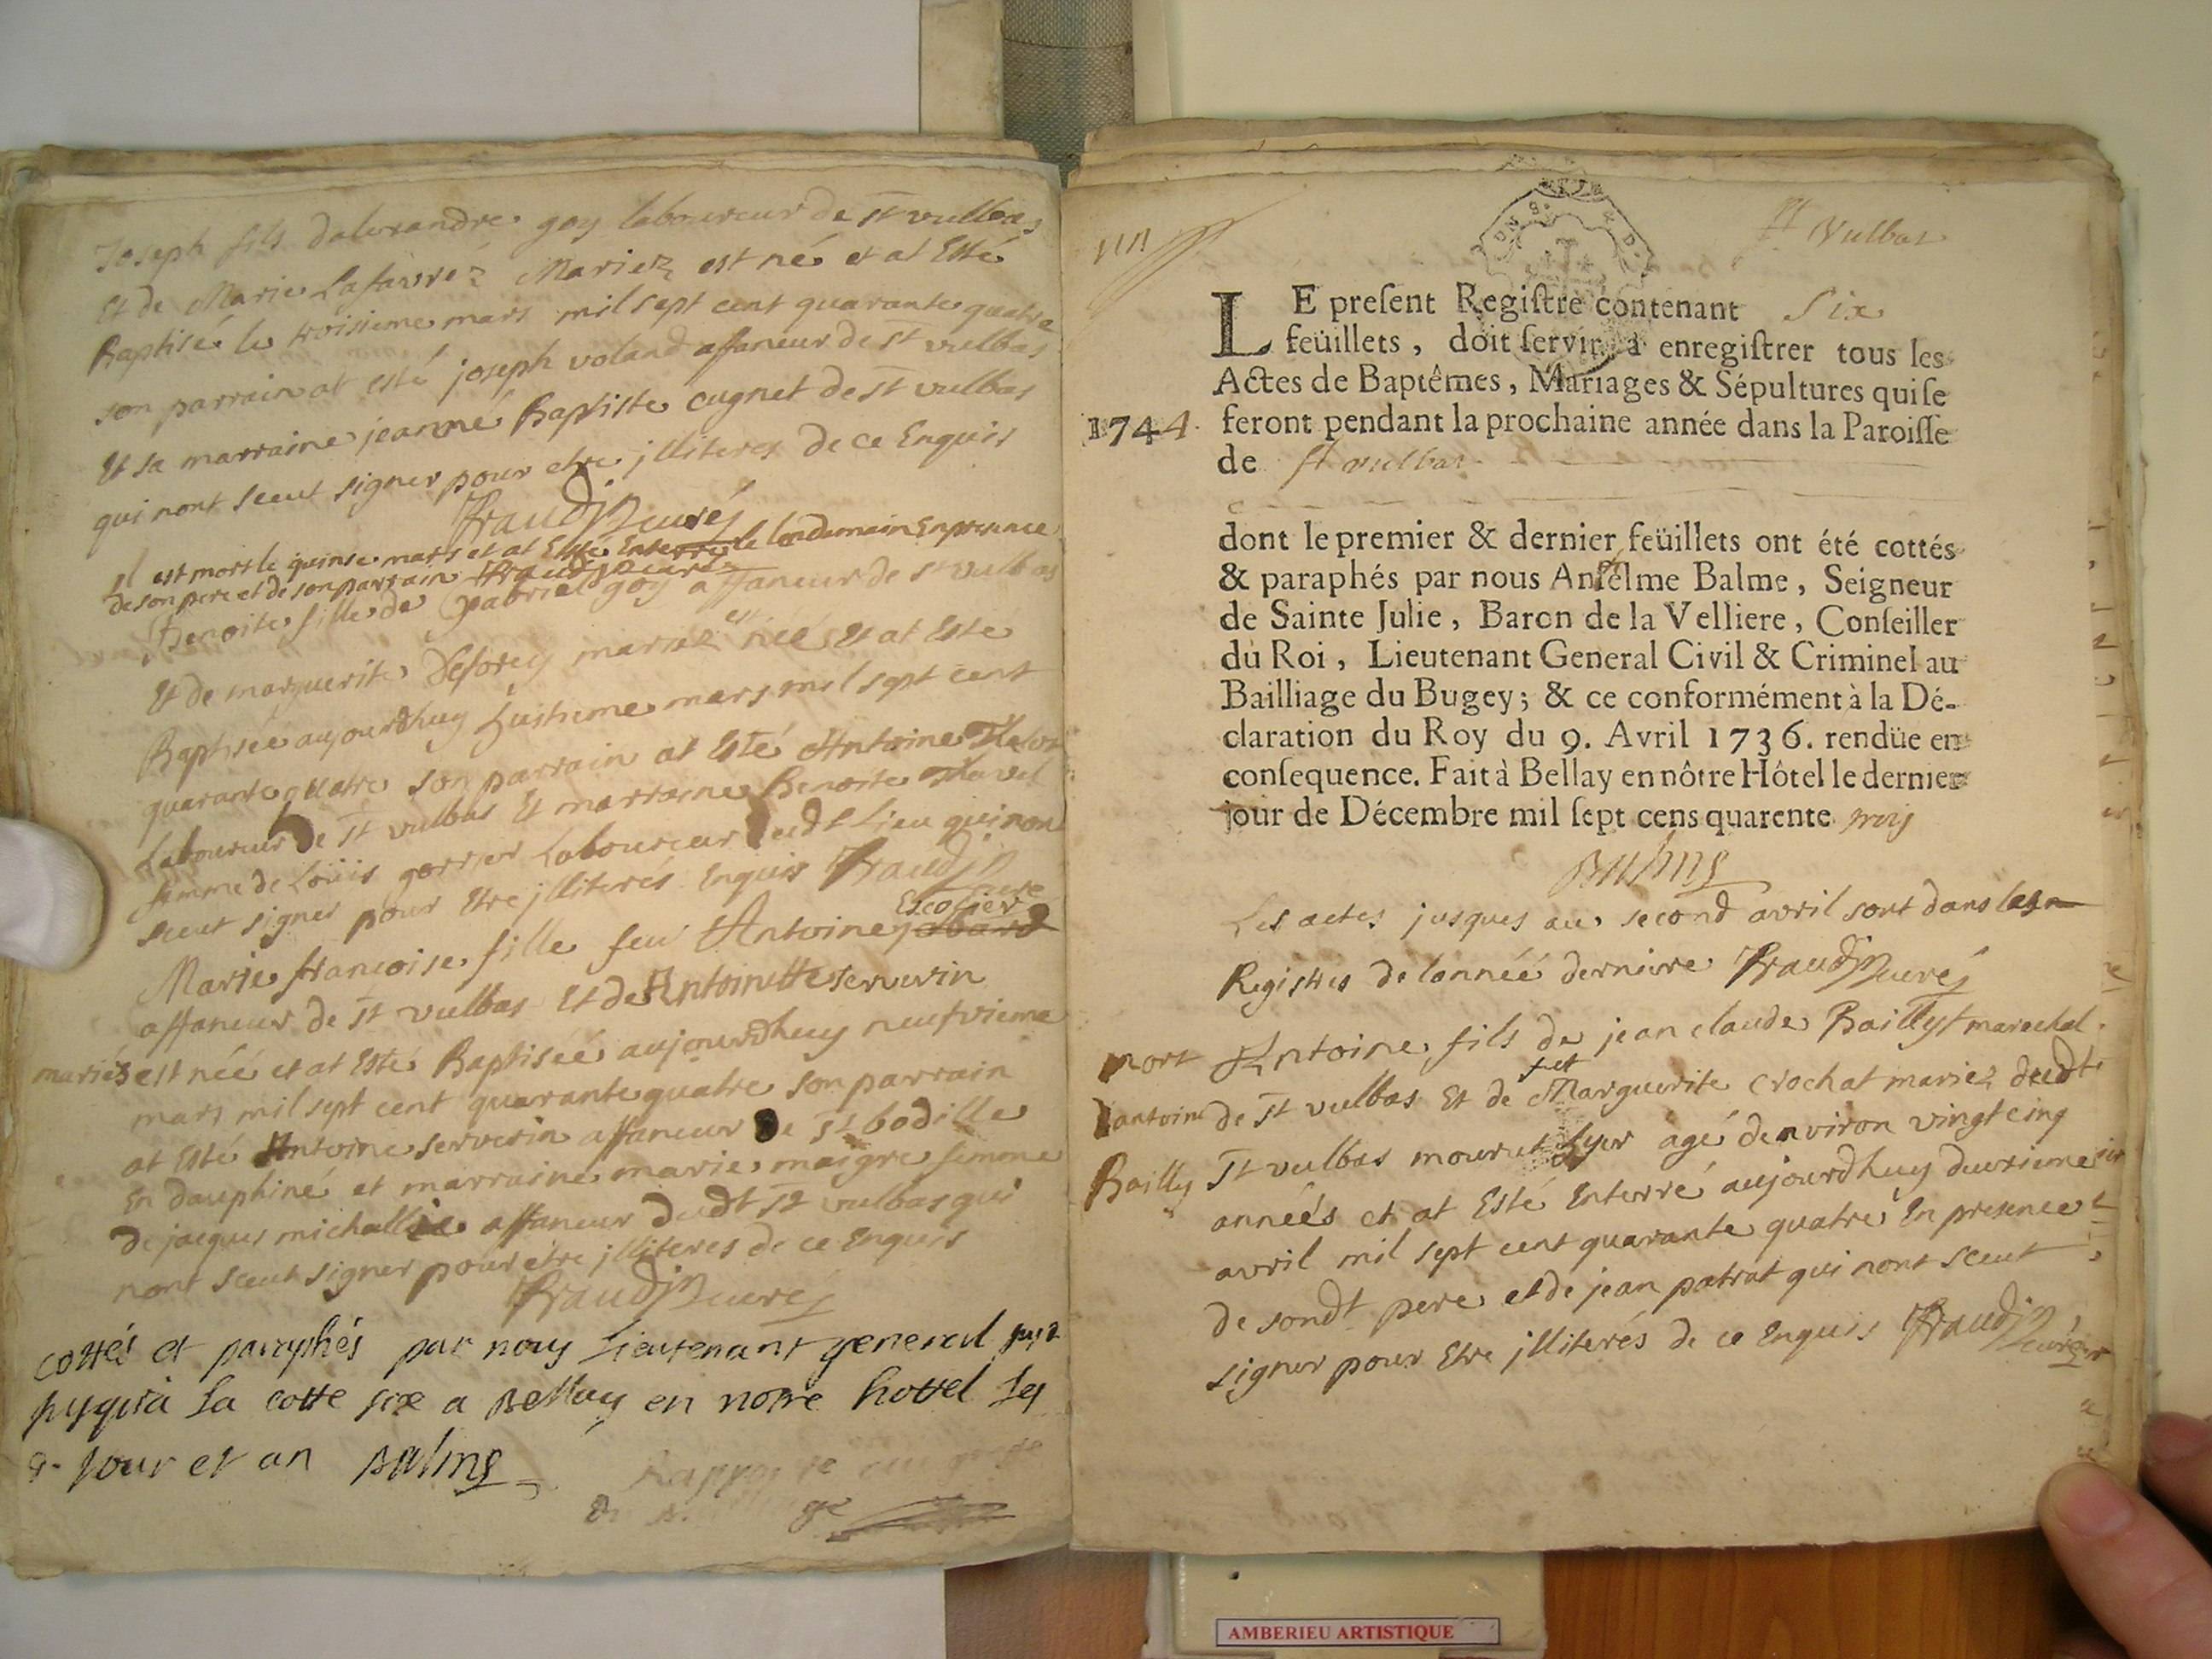 Joseph fils dalexandre goy laboureur de st vulbas
Et de Marie Lafavre Mariez est né et at Esté
Baptisé le troisieme mars mil sept cent quarante quatre
son parrain at esté joseph voland affaneur de st vulbas
Et sa marraine jeanne Baptiste cugnet de st vulbas
qui nont sceut signer pour etre jlliteres de ce Enquis
Fraudin curé
Il est mort le quinse mars et at Esté Enterré le lendemain En presence
de son pere et de son parrain Fraudin curé
Benoite fille de Gabriel goy affaneur de st vulbas
Et de marguerite Deforey mariez est née Et at Este
Baptisée aujourdhuy huitieme mars mil sept cent
quarante quatre son parrain at Esté Antoine
Laboureur de st vulbas Et marraine Benoite
femme de Loüis gorrier Laboureur dudt Lieu qui nont
sceut signer pour Etre jlliterés Enquis Fraudin
curé
Escofier
Marie francoise fille feu Antoine
affaneur de st vulbas Et de Antoinette serverin
mariés est née et at Esté Baptisée aujourdhuy neufvieme
mars mil sept cent quarante quatre son parrain
at Esté Antoine serverin affaneur de st bodille
En dauphiné et marraine marie maigre femme
de jacques michallie affaneur dudt st vulbas qui
nont sceut signer pour etre jlliteres de ce Enquis
Fraudin curé
cottés et paraphés par nous Lieutenant general
jusqu'a La cotte six a Bellay en notre hottel Les
jour et an Balme
st Vulbas
LE preſent Regiſtre contenant Six
feüillets, doit ſervir à enregiſtrer tous les
Actes de Baptêmes, Mariages & Sépultures qui ſe
1744. feront pendant la prochaine année dans la Paroiſſe
de st vulbas
dont le premier & dernier feüillets ont été cottés
& paraphés par nous Anſelme Balme, Seigneur
de Sainte Julie, Baron de la Velliere, Conſeiller
du Roi, Lieutenant General Civil & Criminel au
Bailliage du Bugey; & ce conformément à la Dé-
claration du Roy du 9. Avril 1736. rendüe en
conſequence. Fait à Bellay en nôtre Hôtel le dernier
jour de Décembre mil ſept cens quarente trois
Balme
Les actes jusques au second avril sont dans
Registres de lannéé derniere Fraudin curé
mort Antoine fils de jean claude Bailly marechal
dantoine de st vulbas Et de fut Marguerite crochat mariez dudt
Bailly st vulbas mourut hyer agé denviron vingt cinq
années et at Esté Enterré aujourdhuy deuxieme
avril mil sept cent quarante quatre En presence
de sondt pere et de jean patrat qui nont sceut
signer pour Etre jlliterés de ce Enquis Fraudin
curé
AMBERIEU ARTISTIQUE